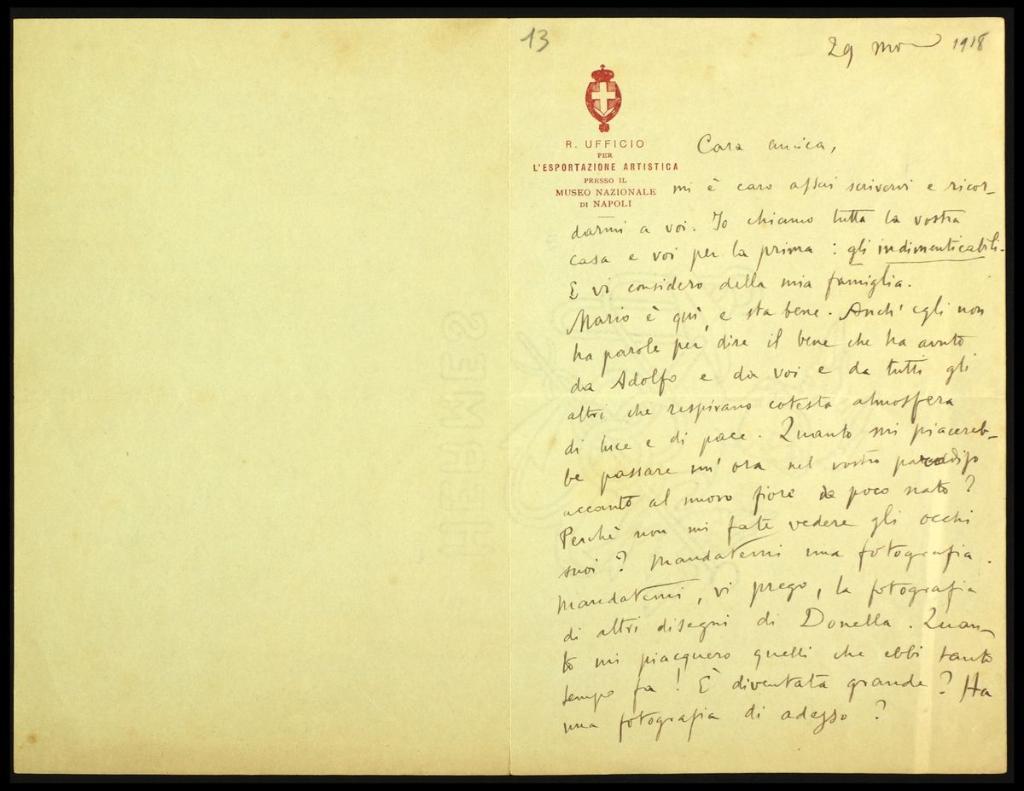 13
29 1918
R. UFFICIO
PER
L'ESPORTAZIONE ARTISTICA
PRESSO IL
MUSEO NAZIONALE
DI NAPOLI
Cara amica,
mi è caro assai scrivervi e ricor-
darmi a voi. Io chiamo tutta la vostra
casa e voi per la prima: gli indimenticabili.
E vi considero della mia famiglia.
Mario è qui, e sta bene. Anch'egli non
ha parole per dire il bene che ha avuto
da Adolfo e da voi e da tutti gli
altri che respirano cotesta atmosfera
di luce e di pace. Quanto mi piacereb-
be passare un'ora nel vostro paradiso
accanto al nuovo fiore da poco nato?
Perchè non mi fate vedere gli occhi
suoi? Mandatemi una fotografia.
Mandatemi, vi prego, la fotografia
di altri disegni di Donella. Quan-
to mi piacquero quelli che ebbi tanto
tempo fa! È diventata grande? Ha
una fotografia di adesso?